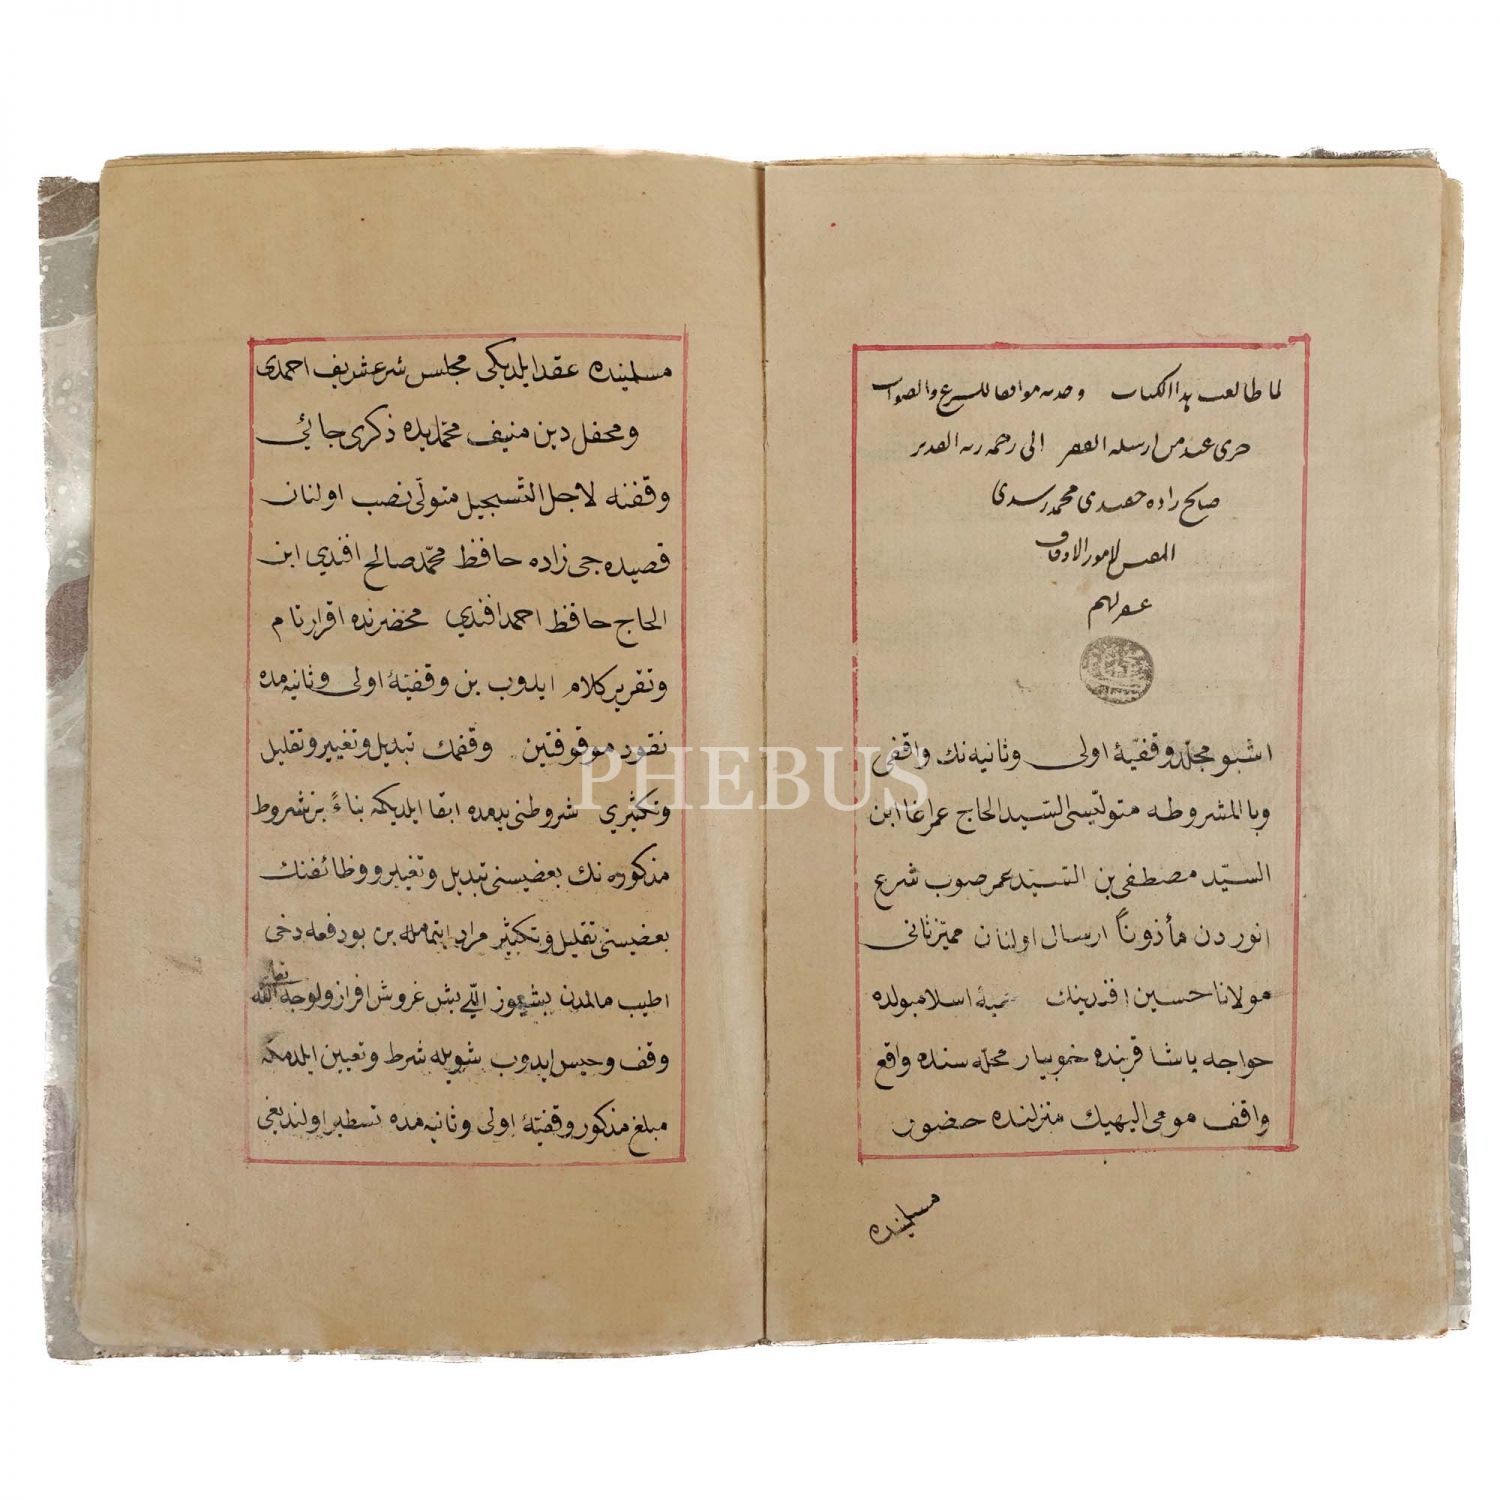 لما طالعت هذا الكتاب وجدته موافقا للشرع والصواب
حرى عند من ارسله الفقير الى رحمة ربه القدير
صالح زاده محمد رشدى
المفتش لامور الاوقاف
عفى لهم
اشبو مجلد وقفيۀ اولى وثانيه نك واقفى
وبالمشروطه متوليسى السيد الحاج عمر اغا ابن
السيّد مصطفى بن السيّد عمر صوب شرع
انوردن مأذوناً ارسال اولنان مميّز ثانى
مولانا حسين افندينك اسلامبولده
خواجه پاشا قربنده خوبيار محلّه سنده واقع
واقف مومى اليهك منزلنده حضور
مسلمينده
مسلمينده عقد ايلديكى مجلس شرع شريف احمدى
ومحفل دين منيف محمّديده ذكرى جائي
وقفنه لاجل التّسجيل متولّى نصب اولنان
قصيده جى زاده حافظ محمّد صالح افندي ابن
الحاج حافظ احمد افندي محضرنده اقرار تام
وتقرير كلام ايدوب بن وقفيّۀ اولى وثانيه مده
نقود موقوفتين وقفمك تبديل وتغيير وتقليل
وتكثيري شروطنى يدمده ابقا ايلديكمه بناءً بن شروط
مذكوره نك بعضيسنى تبديل وتغيير ووظائفنك
بعضيسنى تقليل وتكثير مراد ايتمامله بن بو دفعه دخى
اطيب مالمدن بشيوز اللي بش غروش افراز ولوجه الله تعالى
وقف وحبس ايدوب شويله شرط وتعيين ايلدمكه
مبلغ مذكور وقفيّۀ اولى وثانيه مده تسطير اولنديغى
PHEBUS